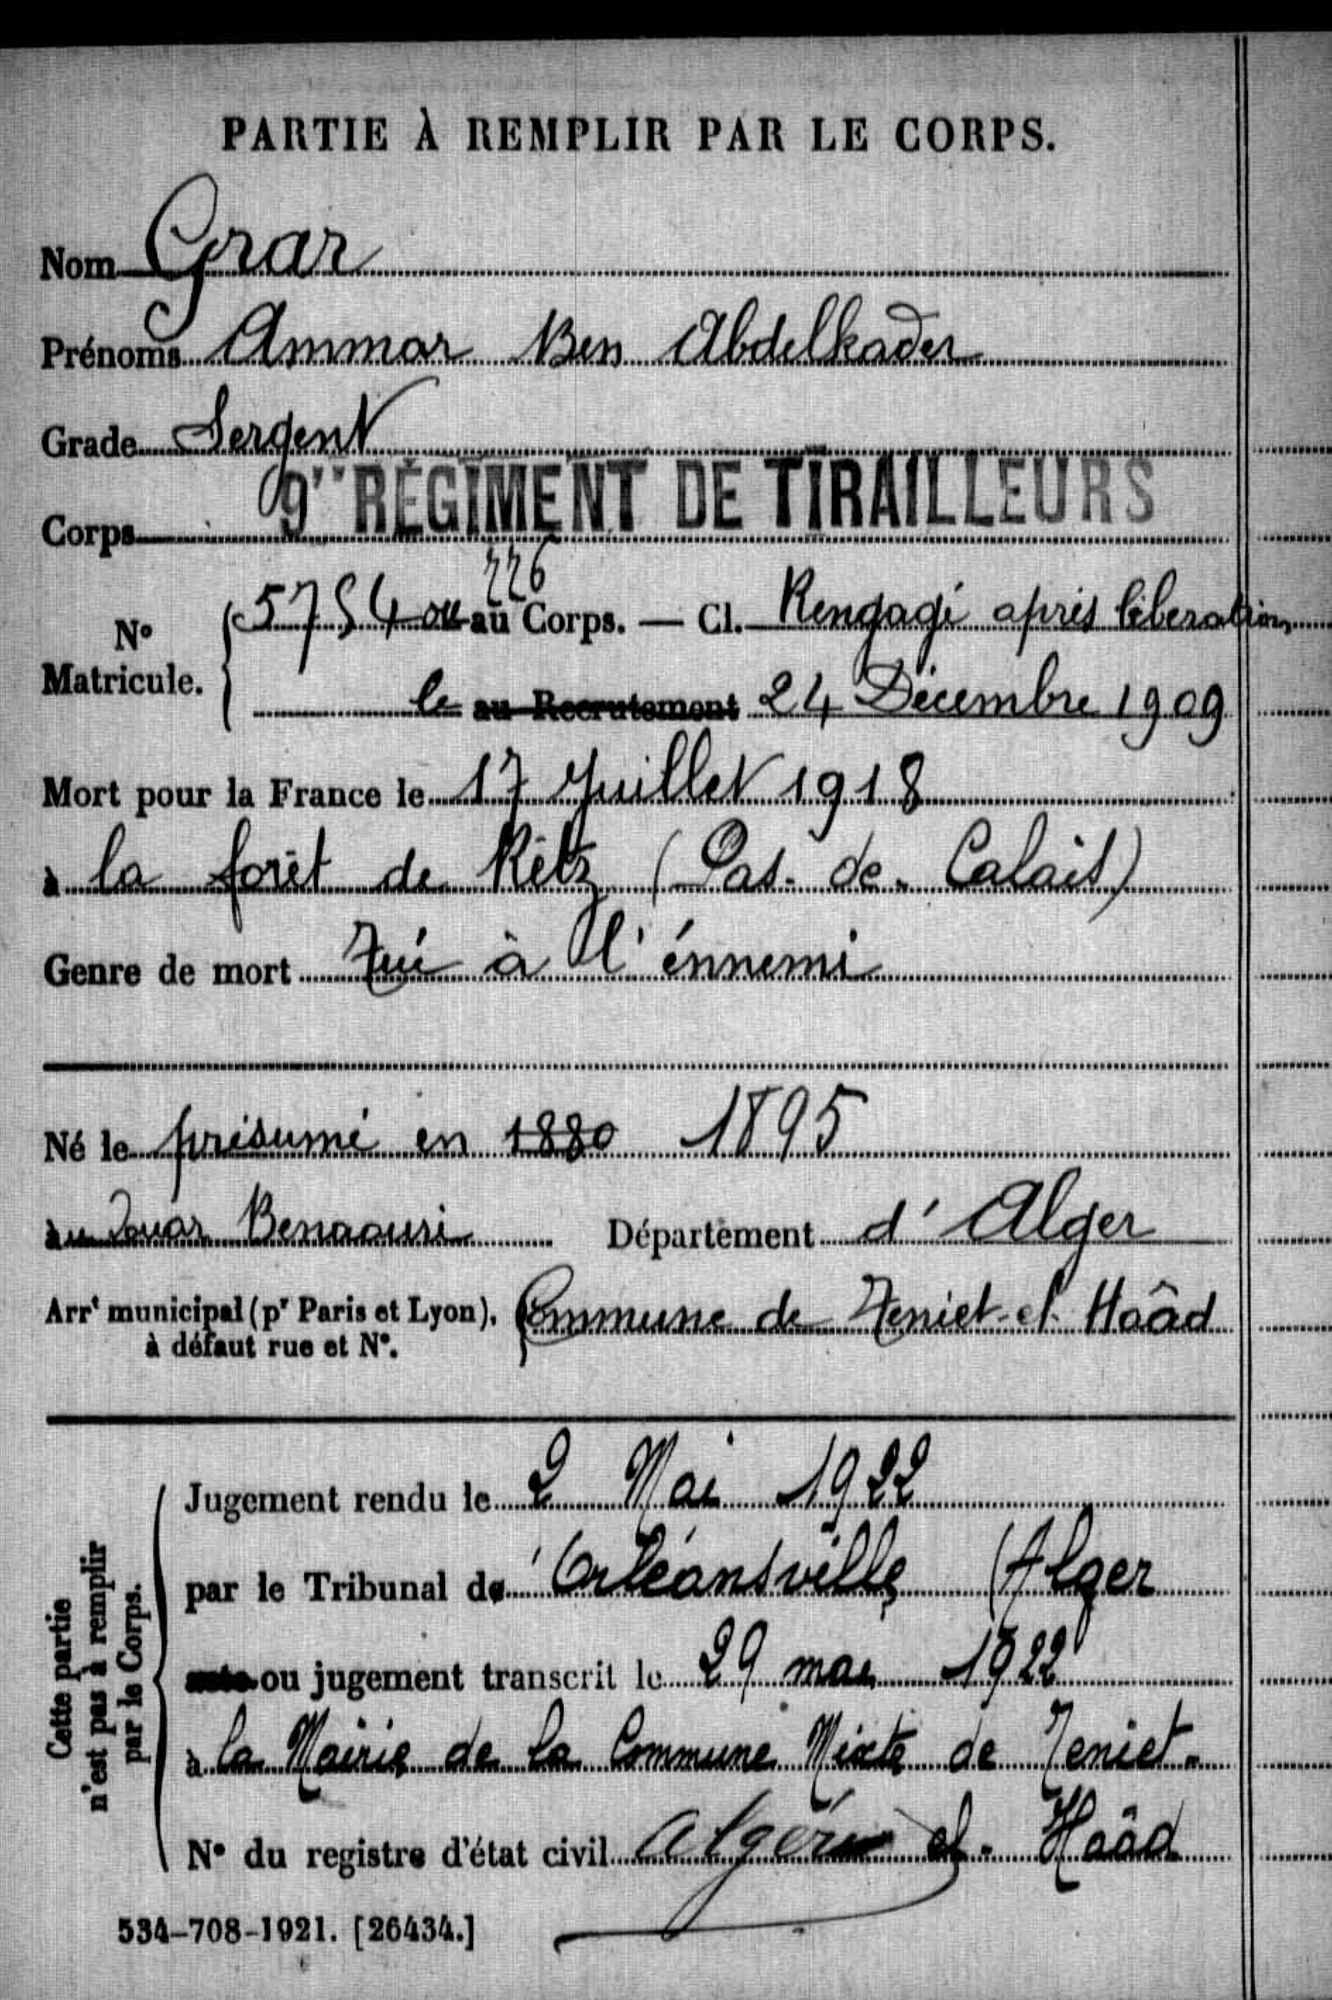 PARTIE À REMPLIR PAR LE CORPS.
Nom Grar
Prénoms Ammar Ben Abdelkader
Grade Sergent
Corps 9e RÉGIMENT DE TIRAILLEURS
226
5754 ou au Corps. — Cl. Rengagé après libération
N° Matricule.
le au Recrutement 24 Décembre 1909
Mort pour la France le 17 Juillet 1918
à la forêt de Retz (Pas-de-Calais)
Genre de mort Tué à l'énnemi
Né le présumé en 1880 1895
au Douar Benaouri Département d'Alger
Arrt municipal (pr Paris et Lyon), Commune de Teniet-el-Haâd
à défaut rue et N°.
Cette partie n'est pas à remplir par le Corps.
Jugement rendu le 2 Mai 1922
par le Tribunal de Orléansville (Alger
ou jugement transcrit le 29 mai 1922
à la Mairie de la Commune Mixte de Teniet-
N° du registre d'état civil Algérie el-Haâd
534-708-1921. [26434.]